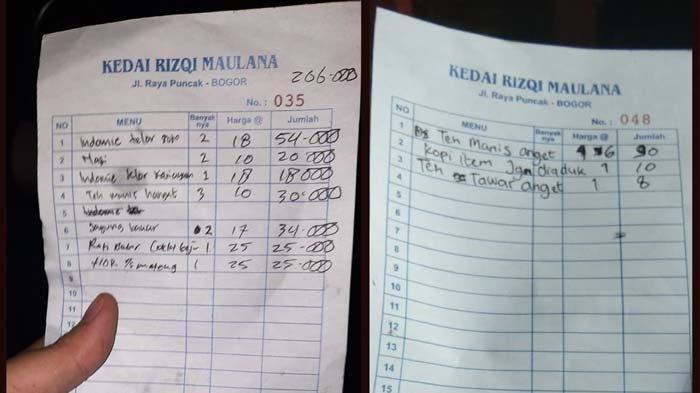 KEDAI RIZQI MAULANA
Jl. Raya Puncak - BOGOR
206-000
No. : 035
NO MENU Banyak nya Harga @ Jumlah
1 Indomie telor 2 18 54-000
2 Nasi 2 10 20-000
3 Indomie telor 1 18 18000
4 Teh manis hangat 3 10 30-000
5 Indomie
6 2 17 34-000
7 Roti Bakar 1 25 25-000
8 1 25 25-000
9
10
11
12
KEDAI RIZQI MAULANA
Jl. Raya Puncak - BOGOR
No. : 048
NO MENU Banyak nya Harga @ Jumlah
1 Teh Manis anget 6 90
2 kopi item Jgn diaduk 1 10
3 Teh Tawar anget 1 8
4
5
6
7
8
9
10
11
12
13
14
15